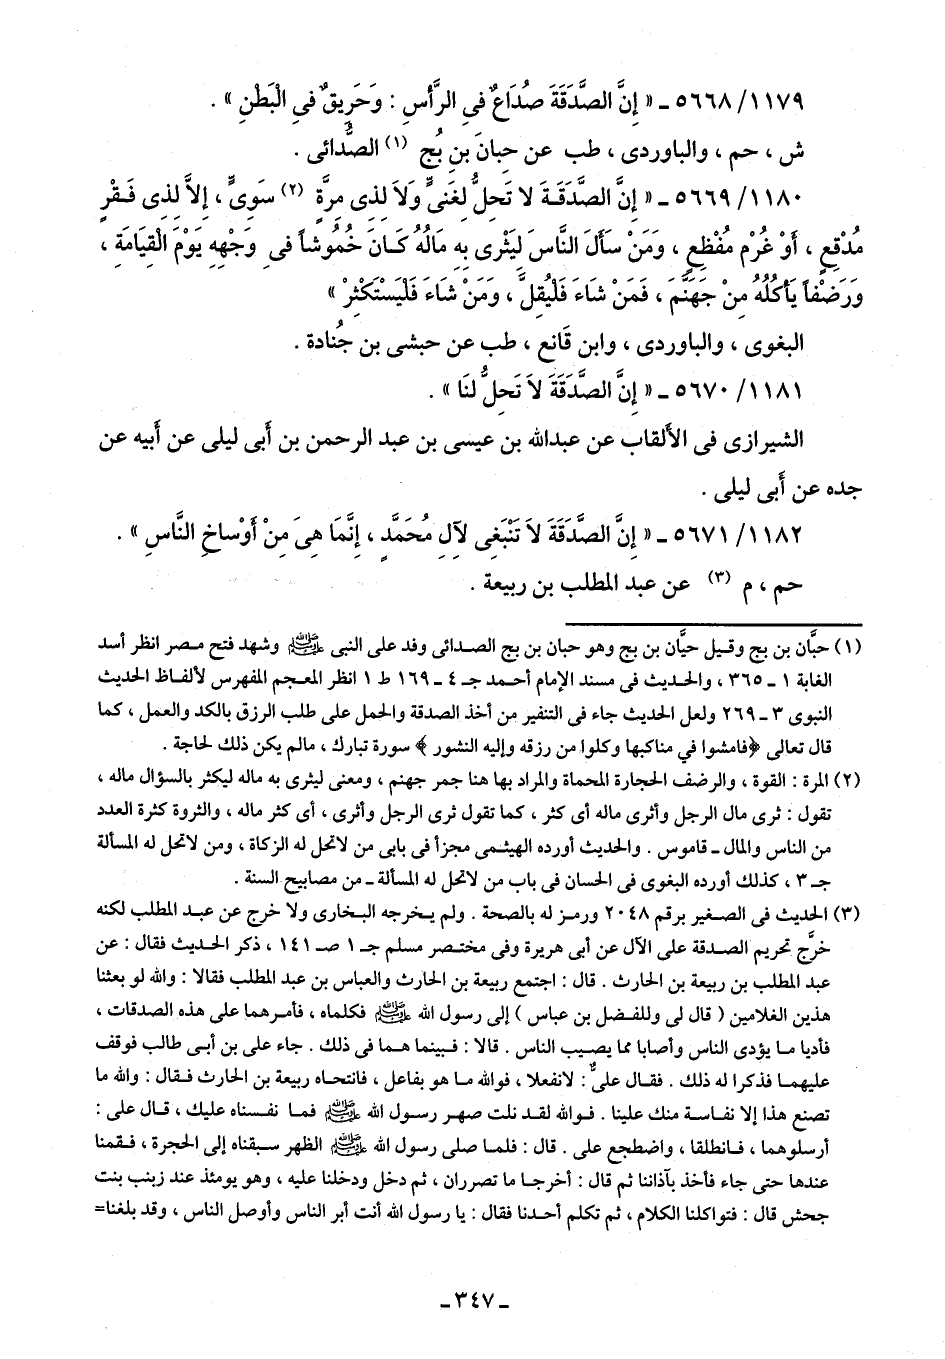 ٥٦٦٨/١١٧٩ ـ « إِنَّ الصَّدَقَةَ صُدَاعٌ فِي الرَّأْسِ : وَحَرِيقٌ فِي الْبَطْنِ » .
ش ، حم ، والباوردى ، طب عن حبانَ بنِ بُحٍ (١) الصُّدائى .
٥٦٦٩/١١٨٠ ـ « إِنَّ الصَّدَقَةَ لاَ تَحِلُّ لِغَنِىٍّ وَلاَ لِذِى مِرَّةٍ (٢) سَوِىٍّ ، إِلاَّ لِذِى فَقْرٍ
مُدْقِعٍ ، أَوْ غُرْمٍ مُفْظِعٍ ، وَمَنْ سَأَلَ النَّاسَ لِيَثْرِى بِهِ مَالُهُ كَانَ خُمُوشاً فِى وَجْهِهِ يَوْمَ الْقِيَامَةِ ،
وَرَضْفاً يَأْكُلُهُ مِنْ جَهَنَّمَ ، فَمَنْ شَاءَ فَلْيُقِلَّ ، وَمَنْ شَاءَ فَلْيَسْتَكْثِرْ »
البغوى ، والباوردى ، وابن قَانع ، طب عن حبشى بن جُنادة .
٥٦٧٠/١١٨١ ـ « إِنَّ الصَّدَقَةَ لاَ تَحِلُّ لَنَا » .
الشيرازى فى الألقاب عن عبدالله بن عيسى بن عبد الرحمن بن أَبى ليلى عن أَبيه عن
جده عن أَبى ليلى .
٥٦٧١/١١٨٢ ـ « إِنَّ الصَّدَقَةَ لاَ تَنْبَغِى لآلِ مُحَمَّدٍ ، إِنَّمَا هِىَ مِنْ أَوْسَاخِ النَّاسِ » .
حم ، م (٣) عن عبد المطلب بن ربيعة .
(١) حبَّان بن بج وقيل حيَّان بن بج وهو حبان بن بج الصدائى وفد على النبى ﷺ وشهد فتح مصر انظر أسد
الغابة ١ ـ ٣٦٥ ، والحديث فى مسند الإمام أحمد جـ ٤ ـ ١٦٩ ط ١ انظر المعجم المفهرس لألفاظ الحديث
النبوى ٣ ـ ٢٦٩ ولعل الحديث جاء فى التنفير من أخذ الصدقة والحمل على طلب الرزق بالكد والعمل ، كما
قال تعالى ﴿فامشوا في مناكبها وكلوا من رزقه وإليه النشور ﴾ سورة تبارك ، مالم يكن ذلك لحاجة .
(٢) المرة : القوة ، والرضف الحجارة المحماة والمراد بها هنا جمر جهنم ، ومعنى ليثرى به ماله ليكثر بالسؤال ماله ،
تقول : ثرى مال الرجل وأثرى ماله أى كثر ، كما تقول ثرى الرجل وأثرى ، أى كثر ماله ، والثروة كثرة العدد
من الناس والمال ـ قاموس . والحديث أورده الهيثمى مجزأ فى بابى من لاتحل له الزكاة ، ومن لاتحل له المسألة
جـ ٣ ، كذلك أورده البغوى فى الحسان فى باب من لاتحل له المسألة ـ من مصابيح السنة .
(٣) الحديث فى الصغير برقم ٢٠٤٨ ورمز له بالصحة . ولم يخرجه البخارى ولا خرج عن عبد المطلب لكنه
خرَّج تحريم الصدقة على الآل عن أبى هريرة وفى مختصر مسلم جـ ١ صـ ١٤١ ، ذكر الحديث فقال : عن
عبد المطلب بن ربيعة بن الحارث . قال : اجتمع ربيعة بن الحارث والعباس بن عبد المطلب فقالا : والله لو بعثنا
هذين الغلامين ( قال لى وللفضل بن عباس ) إلى رسول الله ﷺ فكلماه ، فأمرهما على هذه الصدقات ،
فأديا ما يؤدى الناس وأصابا مما يصيب الناس . قالا : فبينما هما فى ذلك . جاء على بن أبى طالب فوقف
عليهما فذكرا له ذلك . فقال علىٌّ : لانفعلا ، فوالله ما هو بفاعل ، فانتحاه ربيعة بن الحارث فقال : والله ما
تصنع هذا إلا نفاسة منك علينا . فوالله لقد نلت صهر رسول الله ﷺ فما نفسناه عليك ، قال على :
أرسلوهما ، فانطلقا ، واضطجع على . قال : فلما صلى رسول الله ﷺ الظهر سبقناه إلى الحجرة ، فقمنا
عندها حتى جاء فأخذ بآذاننا ثم قال : أخرجا ما تصرران ، ثم دخل ودخلنا عليه ، وهو يومئذ عند زينب بنت
جحش قال : فتواكلنا الكلام ، ثم تكلم أحدنا فقال : يا رسول الله أنت أبر الناس وأوصل الناس ، وقد بلغنا=
ـ ٣٤٧ ـ